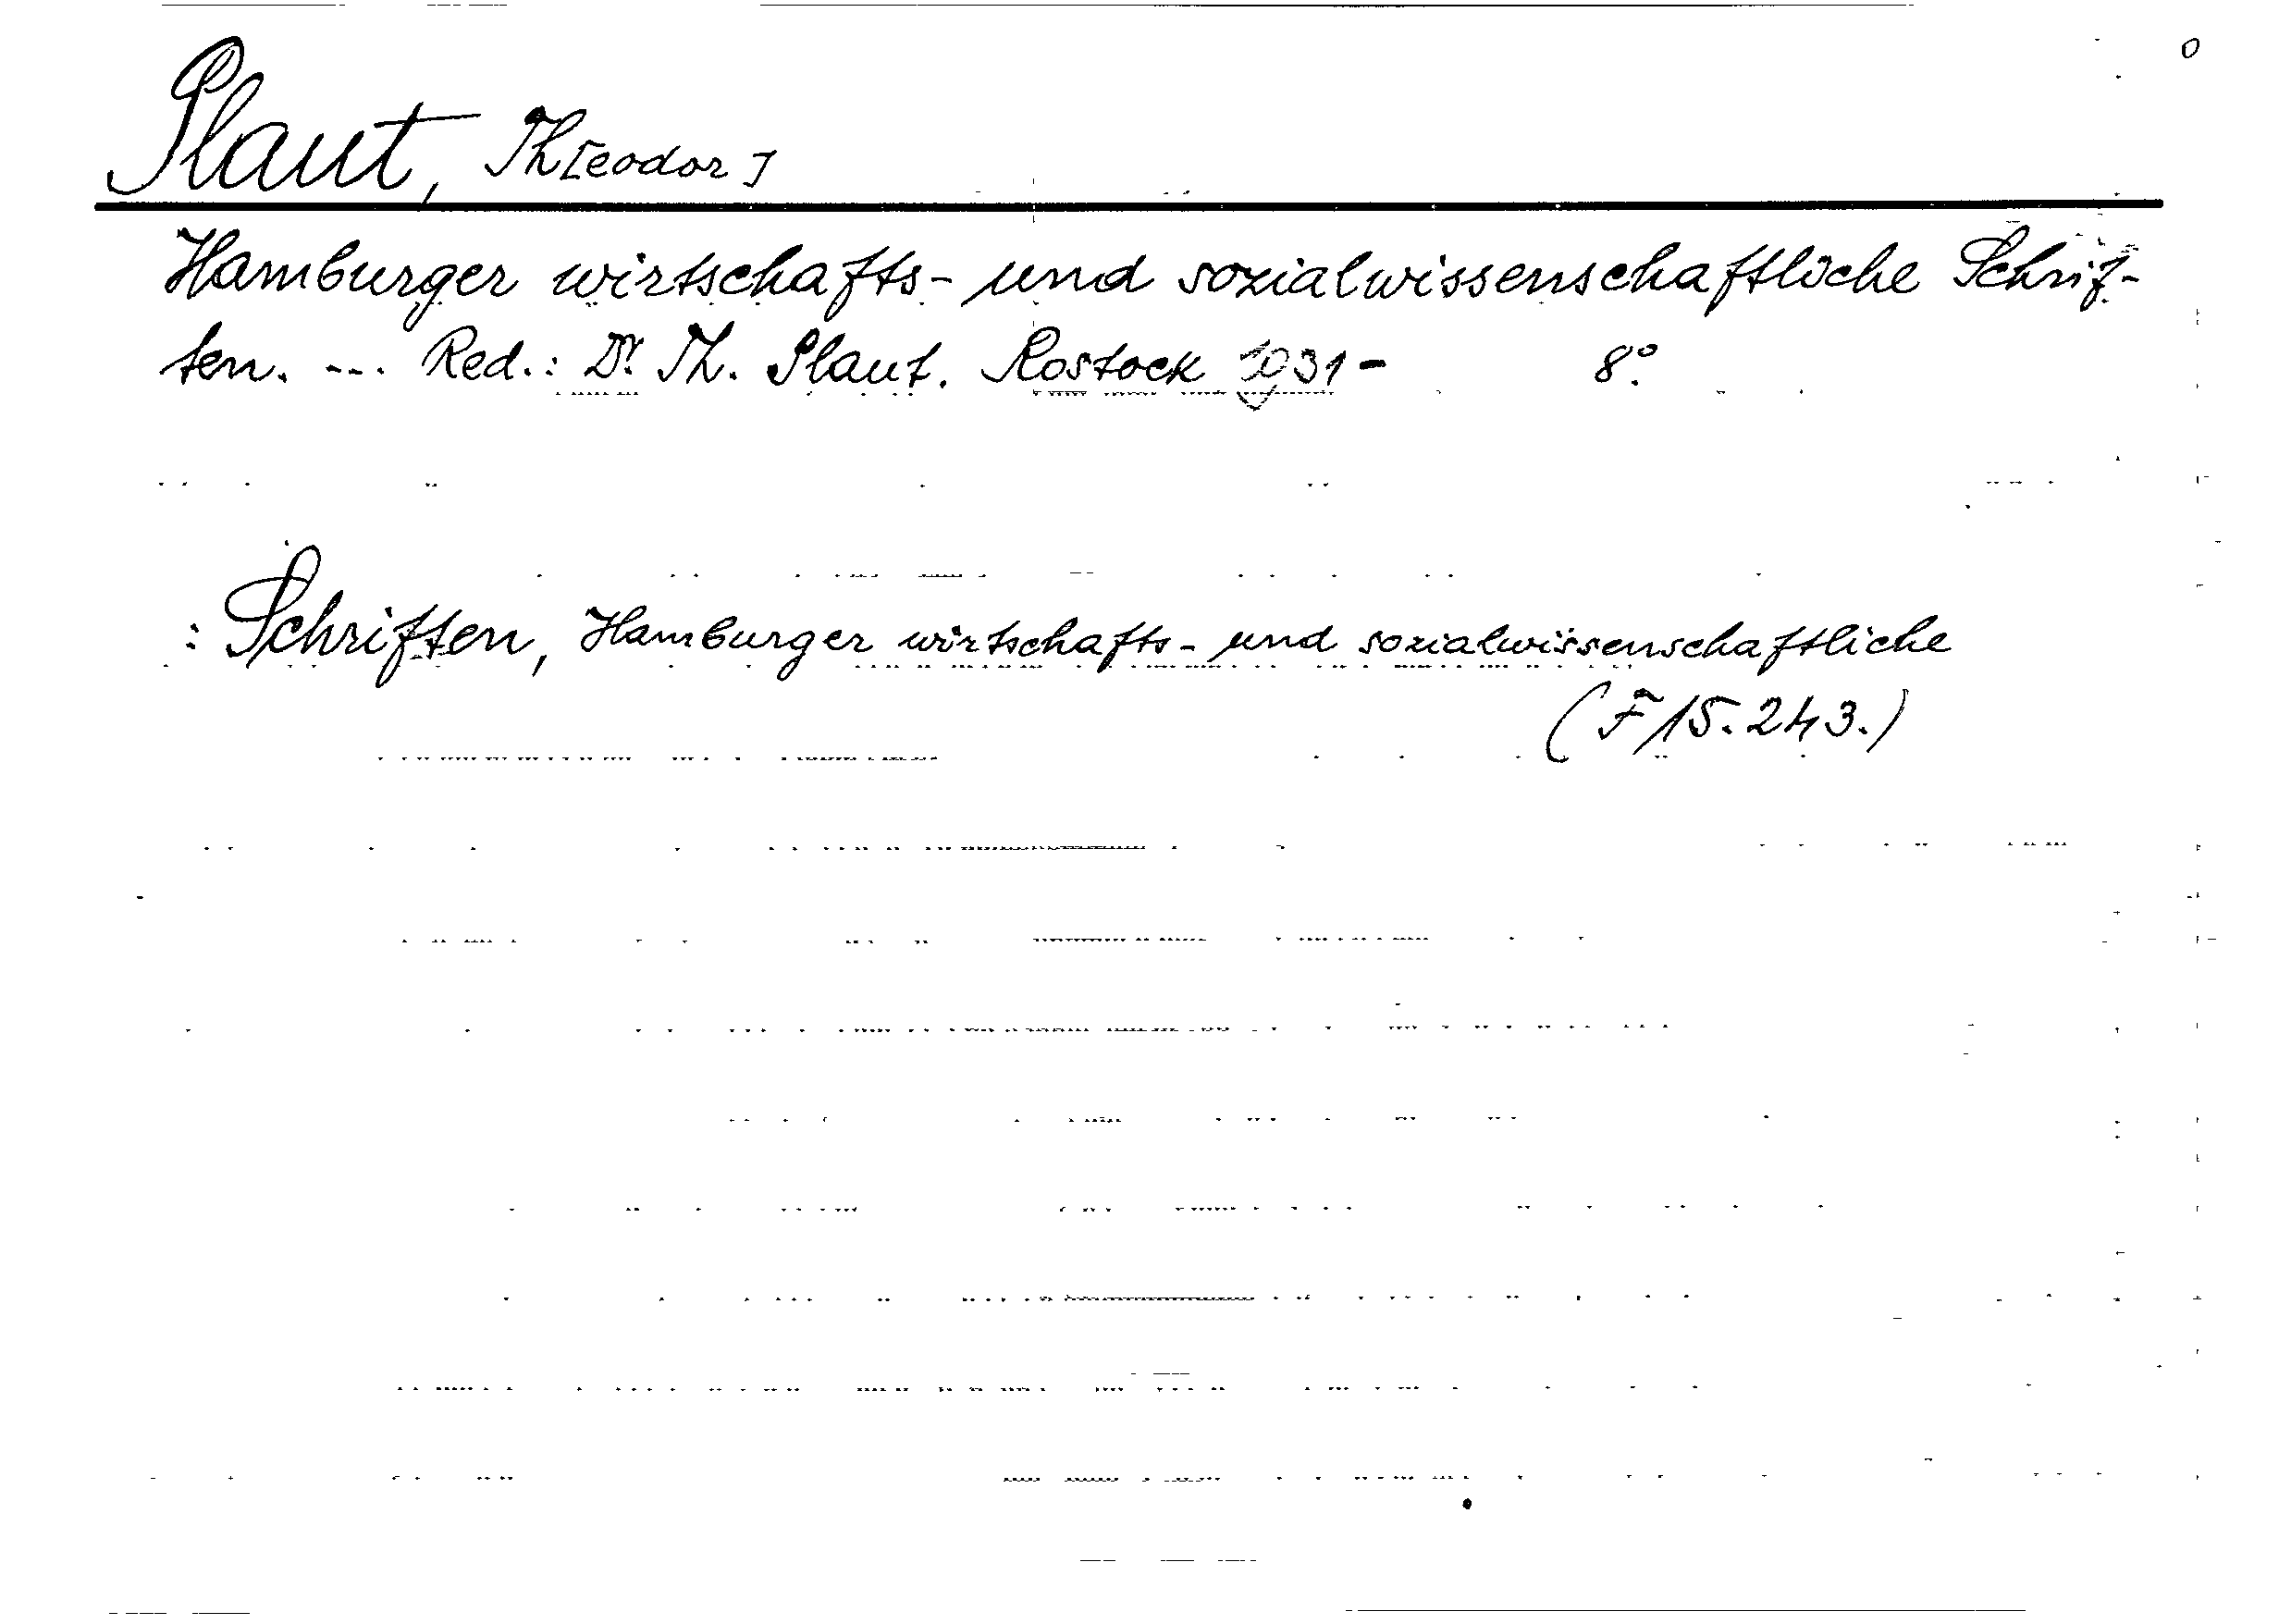 O
Plaut, Th[eodor]
Hamburger wirtschafts- und sozialwissenschaftliche Schrif-
ten. --. Red.: Dr. Th. Plaut. Rostock 1931- 8°.
: Schriften, Hamburger wirtschafts- und sozialwissenschaftliche
(F 15.243.)